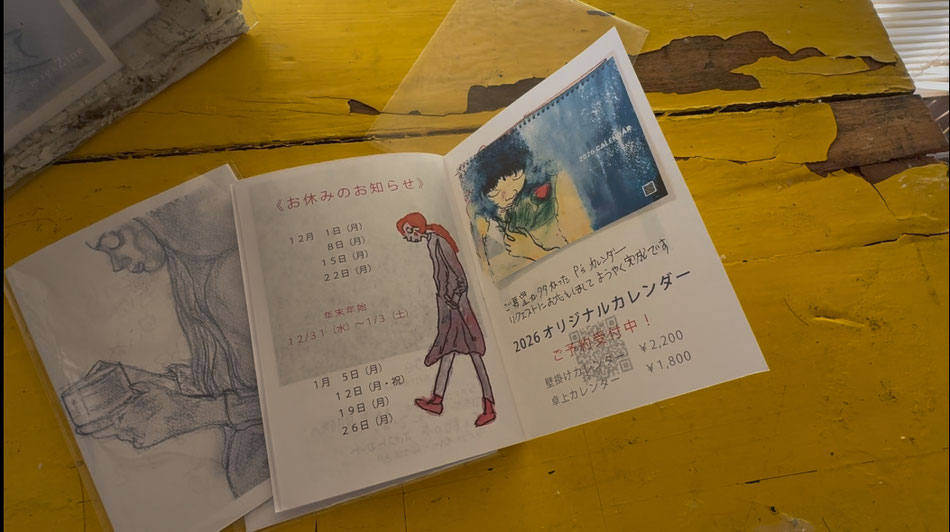 Zine
《お休みのお知らせ》
12月 1日（月）
8日（月）
15日（月）
22日（月）
年末年始
12/31（水）～1/3（土）
1月 5日（月）
12日（月・祝）
19日（月）
26日（月）
2026 CALENDAR
ご希望が多かった P's カレンダー
リクエストにお応えしまして ようやく完成です
2026 オリジナルカレンダー
ご予約受付中！
壁掛けカレンダー ￥2,200
卓上カレンダー ￥1,800